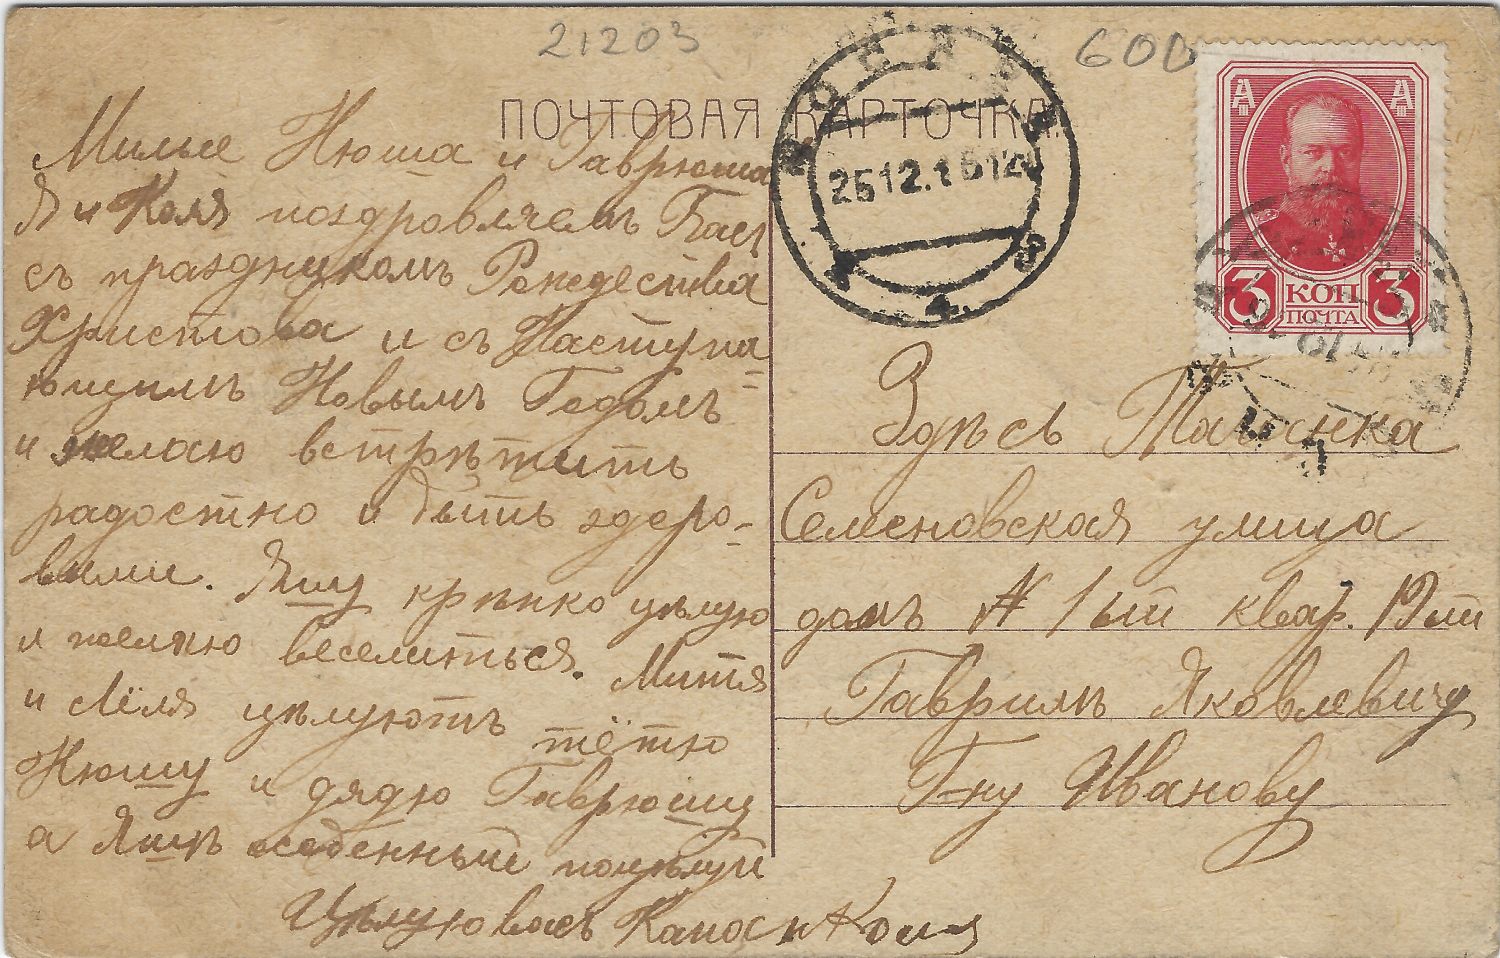 21203
600
ПОЧТОВАЯ КАРТОЧКА.
МОСКВА
25 12.15 12
4.
3 КОП 3
ПОЧТА
Милые Нюша и Гаврюша
Я и Коля поздровляемъ Васъ
съ праздникомъ Рождества
Христова и съ Наступа=
ющимъ Новымъ Годомъ
и желаю встрѣтить
радостно и быть здоро-
выми. Яшу крѣпко цѣлую
и желаю веселиться. Митя
и Лёля цѣлуютъ тётю
Нюшу и дядю Гаврюшу
а Яшѣ особенный поцѣлуй
Цѣлую васъ и Коля
Здѣсь Таганка
Семеновская улица
домъ № 1ый квар. 19ый
Гаврилъ Яковлевичу
Г=ну Иванову